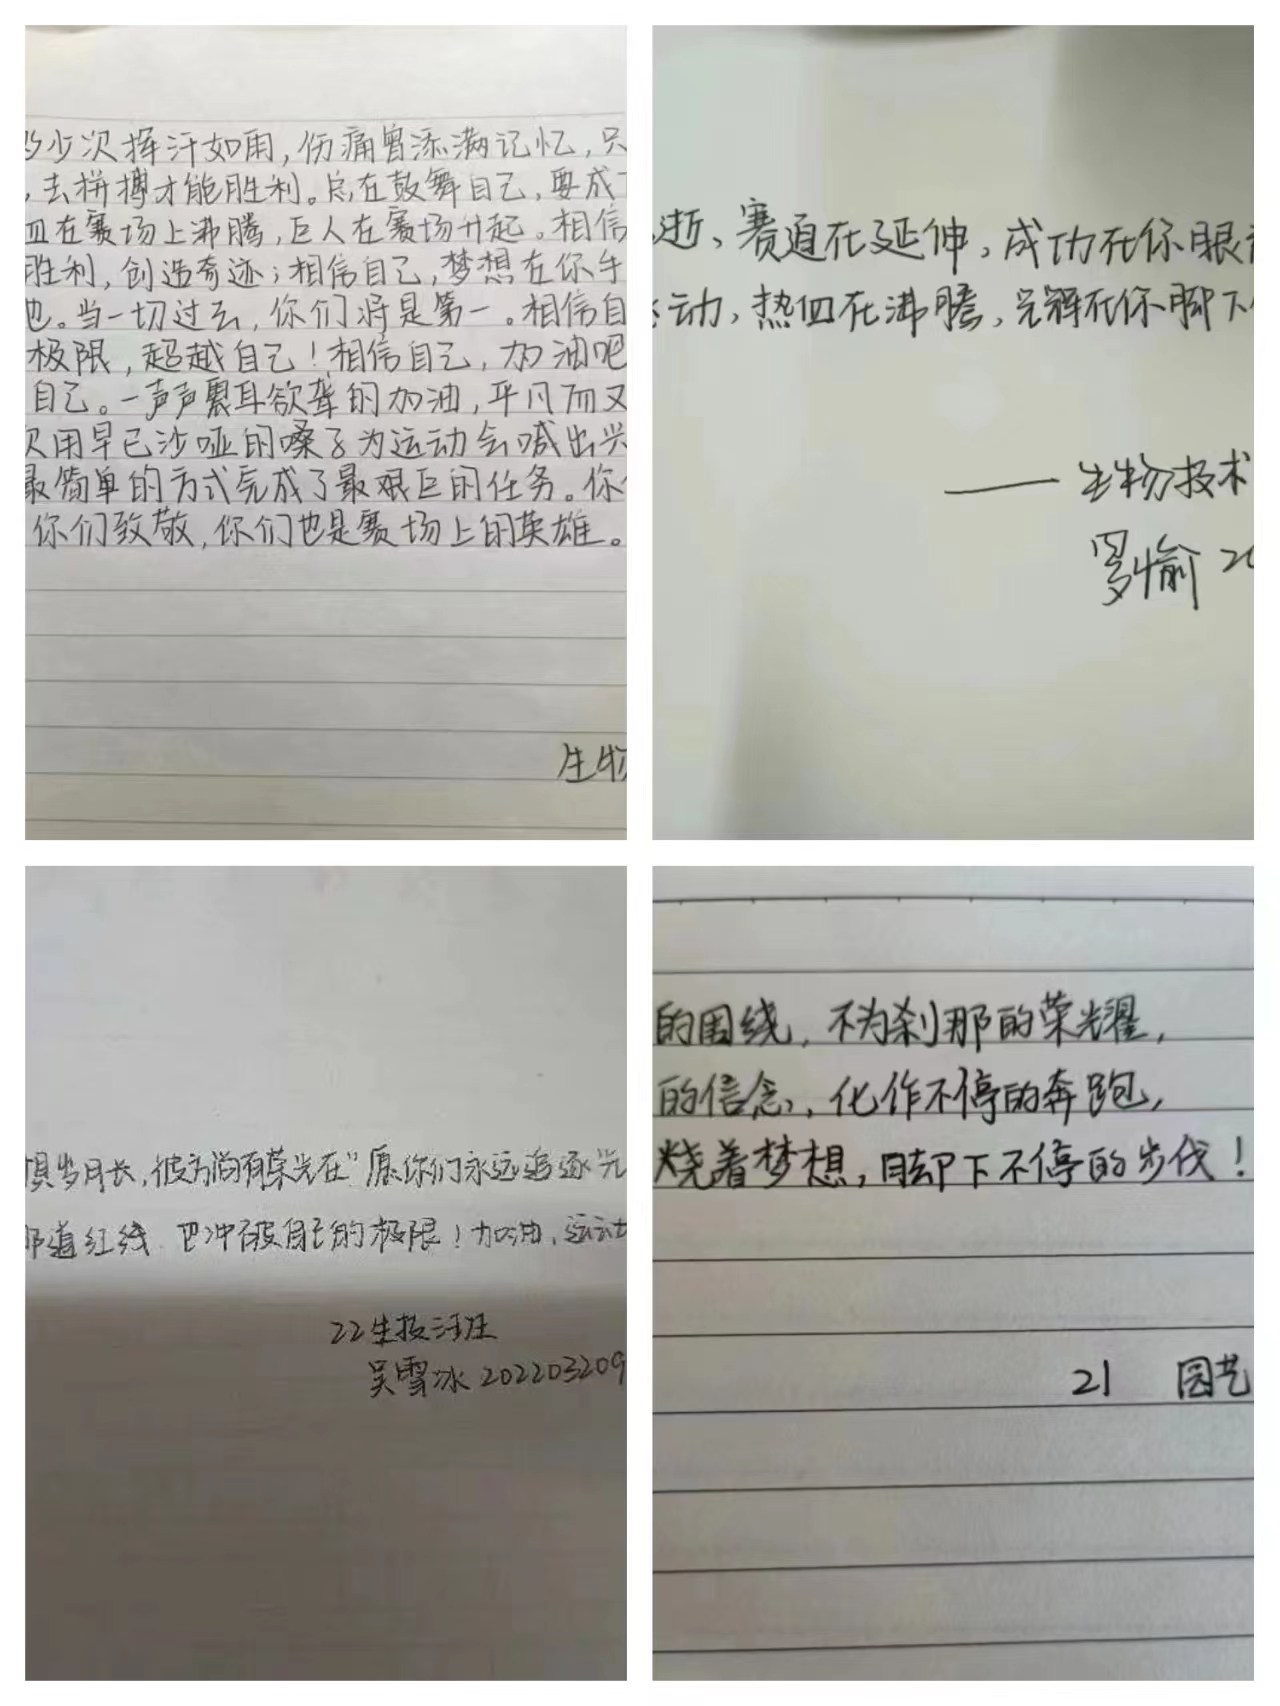 少次挥汗如雨,伤痛曾添满记忆,只
,去拼搏才能胜利。总在鼓舞自己,要成
血在赛场上沸腾,巨人在赛场升起。相信
胜利,创造奇迹;相信自己,梦想在你手
也。当一切过去,你们将是第一。相信自
极限,超越自己!相信自己,加油吧
自己。一声声震耳欲聋的加油,平凡而又
用早已沙哑的嗓子为运动会喊出兴
最简单的方式完成了最艰巨的任务。你
你们致敬,你们也是赛场上的英雄。
生物
逝、赛道在延伸,成功在你眼
动,热血在沸腾,光辉在你脚下
——生物技术
罗愉 20
惧岁月长,彼方尚有荣光在”愿你们永远追逐光
那道红线 冲破自己的极限!加油,运动
22生技
吴雪冰 202203209
的围绕,不为刹那的荣光耀,
的信念,化作不停的奔跑,
烧着梦想,脚下不停的步伐!
21 园艺